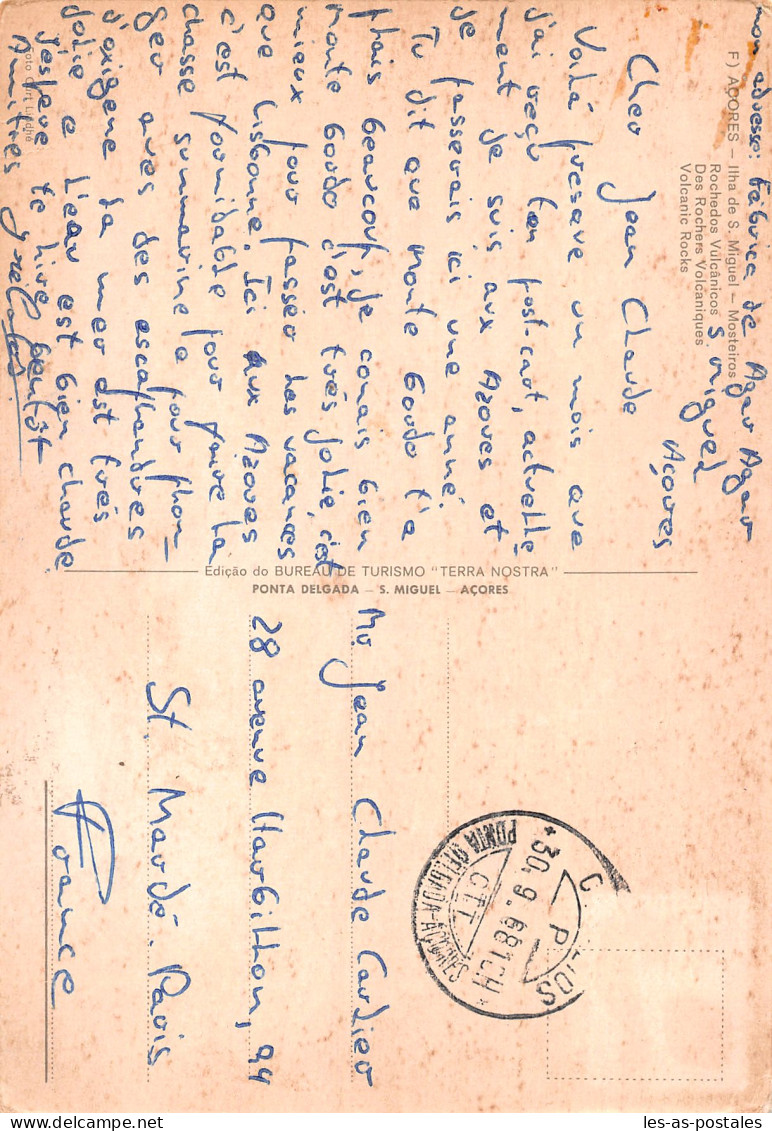 mon adresse: Fábrica de Agar Agar
S. Miguel
Açores
F) AÇORES — Ilha de S. Miguel — Mosteiros
Rochedos Vulcânicos
Des Rochers Volcaniques
Volcanic Rocks
Cher Jean Claude
Voilá presave un mois que
j'ai reçu ton post.cart, actuelle
ment je suis aux Azores et
je passerais ici une anné.
Tu dit que Monte Gordo t'a
plais beaucoup, je conais bien
Monte Gordo c'est très jolie, c'est
mieux pour passéo les vacances
que Lisbonne. Ici aux Azores
c'est formidable pour faire la
chasse summarine e pour plon_
ger aves des escaphandres
d'oxigene la mer est très
jolie e l'eau est bien chaude
J'espere te lire bentôt
Amitiés
Edição do BUREAU DE TURISMO "TERRA NOSTRA"
PONTA DELGADA — S. MIGUEL — AÇORES
Mr Jean Claude Carlier
28 avenue Harbillon, 94
St. Mardé. Paris
France
PONTA DELGADA
CTT
30.9.68
les-as-postales